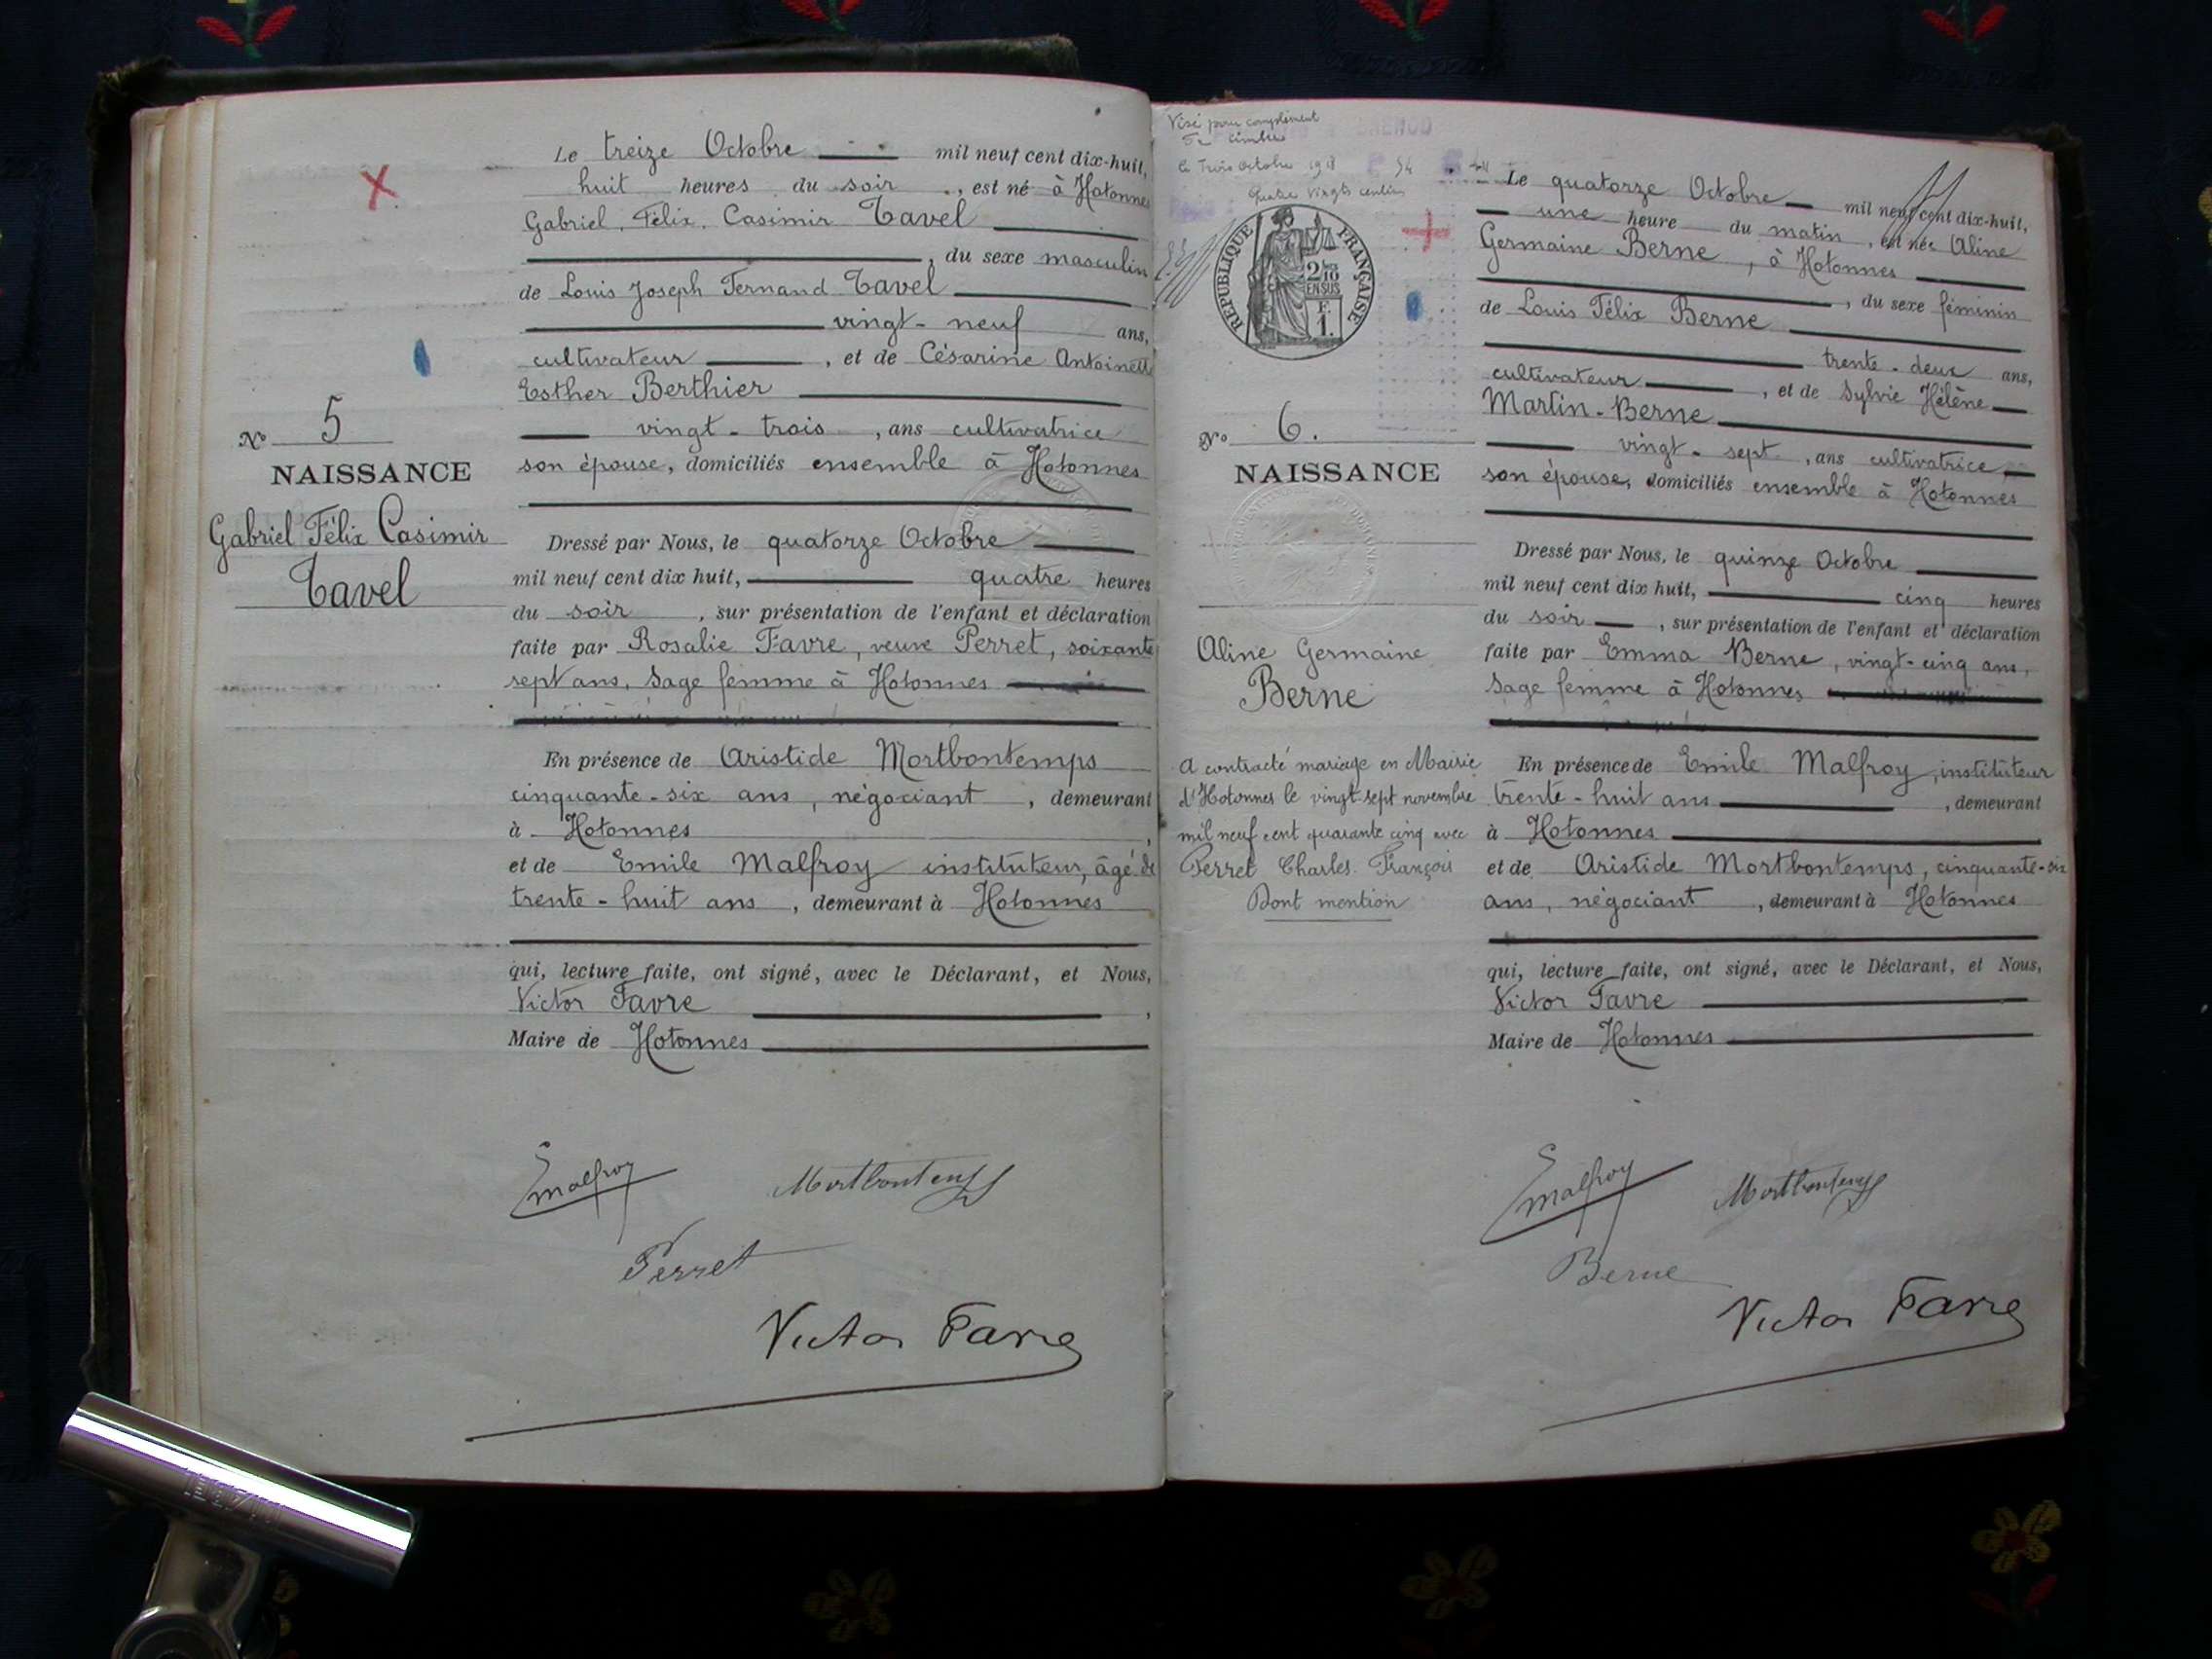 Le treize Octobre mil neuf cent dix-huit,
huit heures du soir, est né à Hotonnes
Gabriel, Félix, Casimir Tavel
, du sexe masculin
de Louis Joseph Fernand Tavel
vingt-neuf ans,
cultivateur, et de Césarine Antoinette
Esther Berthier
vingt-trois, ans cultivatrice
son épouse, domiciliés ensemble à Hotonnes
No 5
NAISSANCE
Gabriel Félix Casimir
Tavel
Dressé par Nous, le quatorze Octobre
mil neuf cent dix huit, quatre heures
du soir, sur présentation de l'enfant et déclaration
faite par Rosalie Favre, veuve Perret, soixante
sept ans, Sage femme à Hotonnes
En présence de Aristide Mortbontemps
cinquante-six ans, négociant, demeurant
à Hotonnes,
et de Emile Malfroy instituteur, âgé de
trente-huit ans, demeurant à Hotonnes
qui, lecture faite, ont signé, avec le Déclarant, et Nous,
Victor Favre,
Maire de Hotonnes
Emalfroy
Mortbontemps
Perret
Victor Favre
Visé pour complément
le Trois Octobre 1918
Quatre vingts centimes
RÉPUBLIQUE FRANÇAISE
2/10
EN SUS
F.
1.
Le quatorze Octobre mil neuf cent dix-huit,
une heure du matin, est née Aline
Germaine Berne, à Hotonnes
, du sexe féminin
de Louis Félix Berne
trente-deux ans,
cultivateur, et de Sylvie Hélène
Martin-Berne
vingt-sept, ans cultivatrice,
son épouse, domiciliés ensemble à Hotonnes
No 6.
NAISSANCE
Aline Germaine
Berne
A contracté mariage en Mairie
d'Hotonnes le vingt-sept novembre
mil neuf cent quarante cinq avec
Perret Charles François
Dont mention
Dressé par Nous, le quinze Octobre
mil neuf cent dix huit, cinq heures
du soir, sur présentation de l'enfant et déclaration
faite par Emma Berne, vingt-cinq ans,
Sage femme à Hotonnes
En présence de Emile Malfroy, instituteur
trente-huit ans, demeurant
à Hotonnes
et de Aristide Mortbontemps, cinquante-six
ans, négociant, demeurant à Hotonnes
qui, lecture faite, ont signé, avec le Déclarant, et Nous,
Victor Favre
Maire de Hotonnes
Emalfroy
Mortbontemps
Berne
Victor Favre